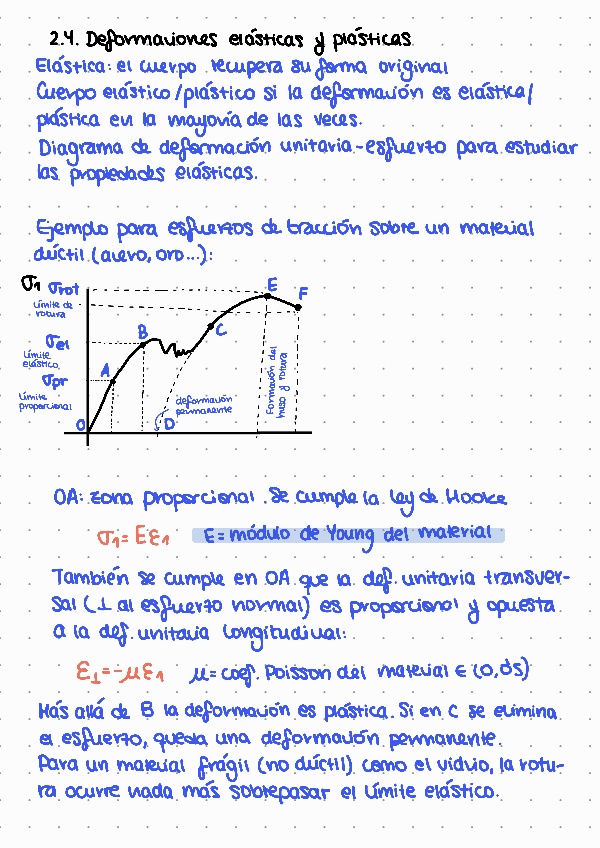 2.4. Deformaciones elásticas y plásticas
Elástica: el cuerpo recupera su forma original
Cuerpo elástico/plástico si la deformación es elástica/
plástica en la mayoría de las veces.
Diagrama de deformación unitaria-esfuerzo para estudiar
las propiedades elásticas.
Ejemplo para esfuerzos de tracción sobre un material
dúctil (acero, oro...):
σ1 σrot
Límite de
rotura
σel
Límite
elástico
σpr
Límite
proporcional
O
A
B
C
D
E
F
deformación
permanente
Formación del
huso y rotura
OA: zona proporcional. Se cumple la ley de Hooke
σ1 = Eε1 E = módulo de Young del material
También se cumple en OA que la def. unitaria transver-
sal (⊥ al esfuerzo normal) es proporcional y opuesta
a la def. unitaria longitudinal:
ε⊥ = -με1 μ = coef. Poisson del material ∈ (0,0'5)
Más allá de B la deformación es plástica. Si en C se elimina
el esfuerzo, queda una deformación permanente.
Para un material frágil (no dúctil) como el vidrio, la rotu-
ra ocurre nada más sobrepasar el límite elástico.